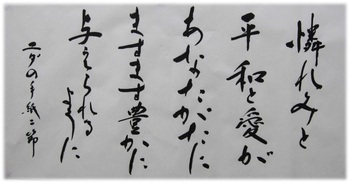 憐れみと
平和と愛が
あなたがたに
ますます豊かに
与えられる
ように
ユダの手紙二節